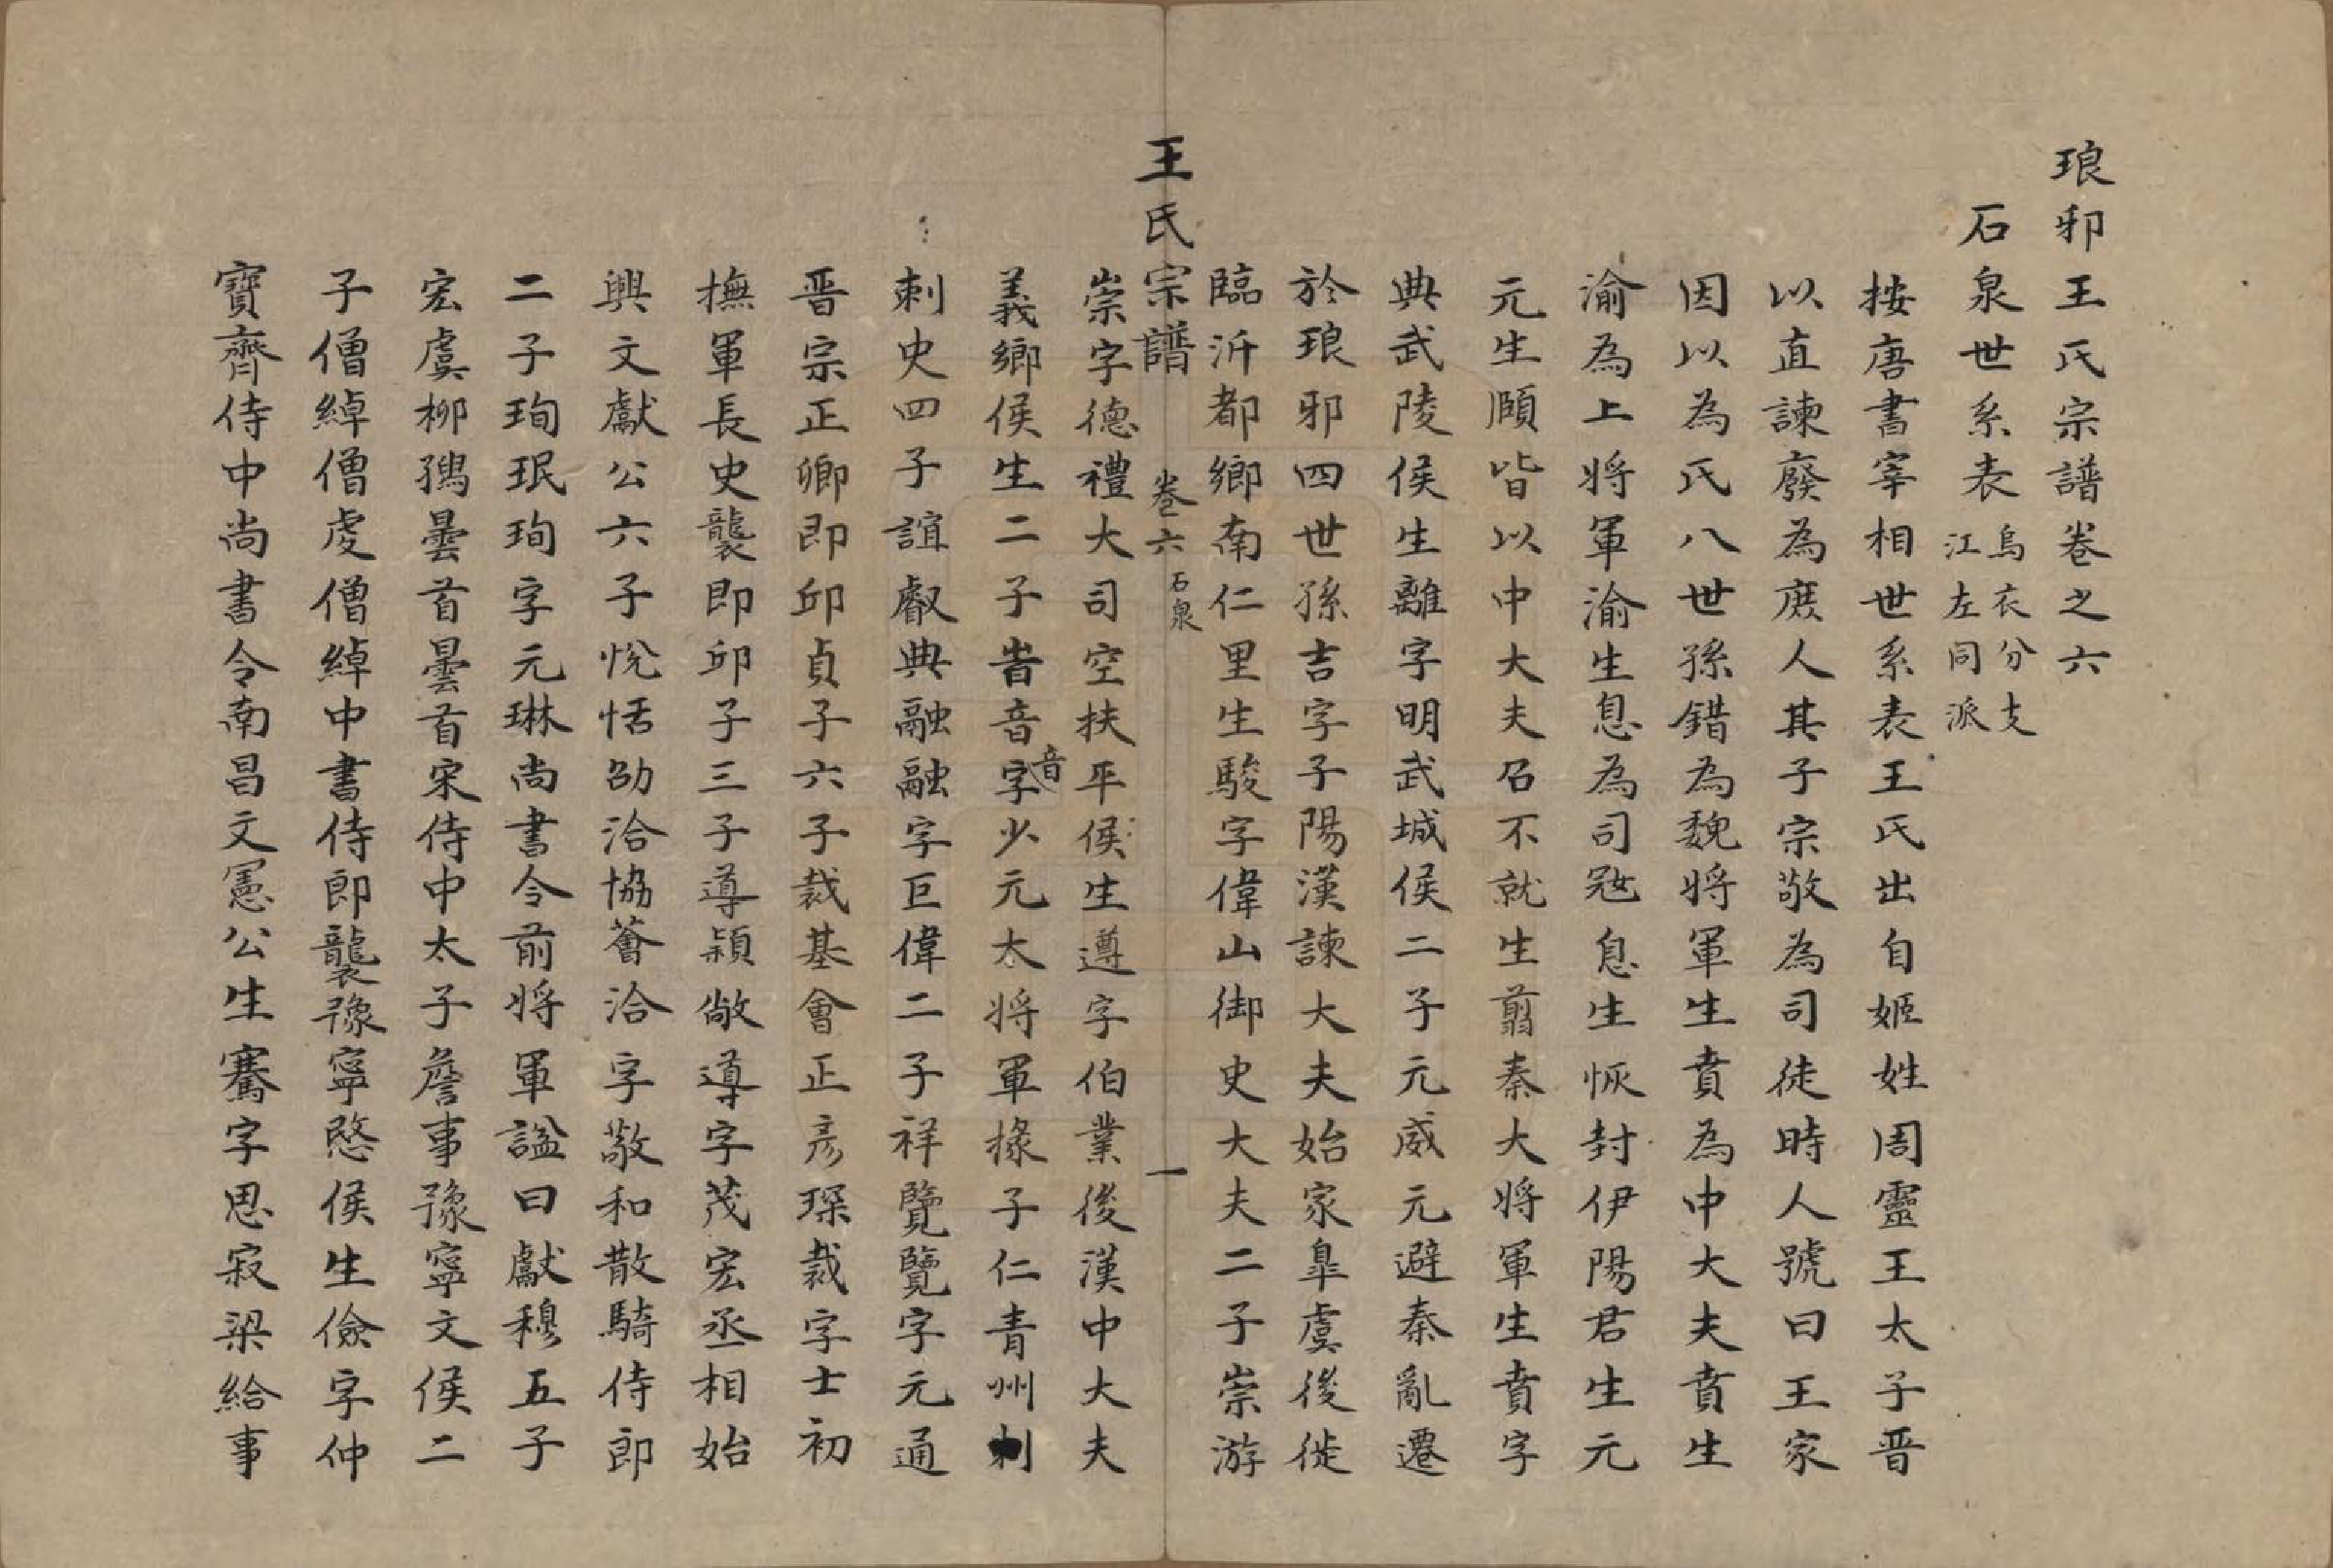 琅邪王氏宗譜卷之六
石泉世系表 烏衣分支
江左同派
按唐書宰相世系表王氏出自姬姓周靈王太子晉
以直諫廢為庶人其子宗敬為司徒時人號曰王家
因以為氏八世孫錯為魏將軍生賁為中大夫賁生
渝為上將軍渝生息為司寇息生恢封伊陽君生元
元生頤皆以中大夫召不就生翦秦大將軍生賁字
典武陵侯生離字明武城侯二子元威元避秦亂遷
於琅邪四世孫吉字子陽漢諫大夫始家臯虞後徙
臨沂都鄉南仁里生駿字偉山御史大夫二子崇游
王氏宗譜 卷六 石泉 一
崇字德禮大司空扶平侯生遵字伯業後漢中大夫
義鄉侯生二子旹音音字少元大將軍掾子仁青州刺
刺史四子誼叡典融融字巨偉二子祥覽覽字元通
晉宗正卿即邱貞子六子裁基會正彥琛裁字士初
撫軍長史襲即邱子三子導穎敞導字茂宏丞相始
興文獻公六子悅恬劭洽協薈洽字敬和散騎侍郎
二子珣珉珣字元琳尚書令前將軍諡曰獻穆五子
宏虞柳孺曇首曇首宋侍中太子詹事豫寧文侯二
子僧綽僧虔僧綽中書侍郎襲豫寧愍侯生儉字仲
寶齊侍中尚書令南昌文憲公生騫字思寂梁給事